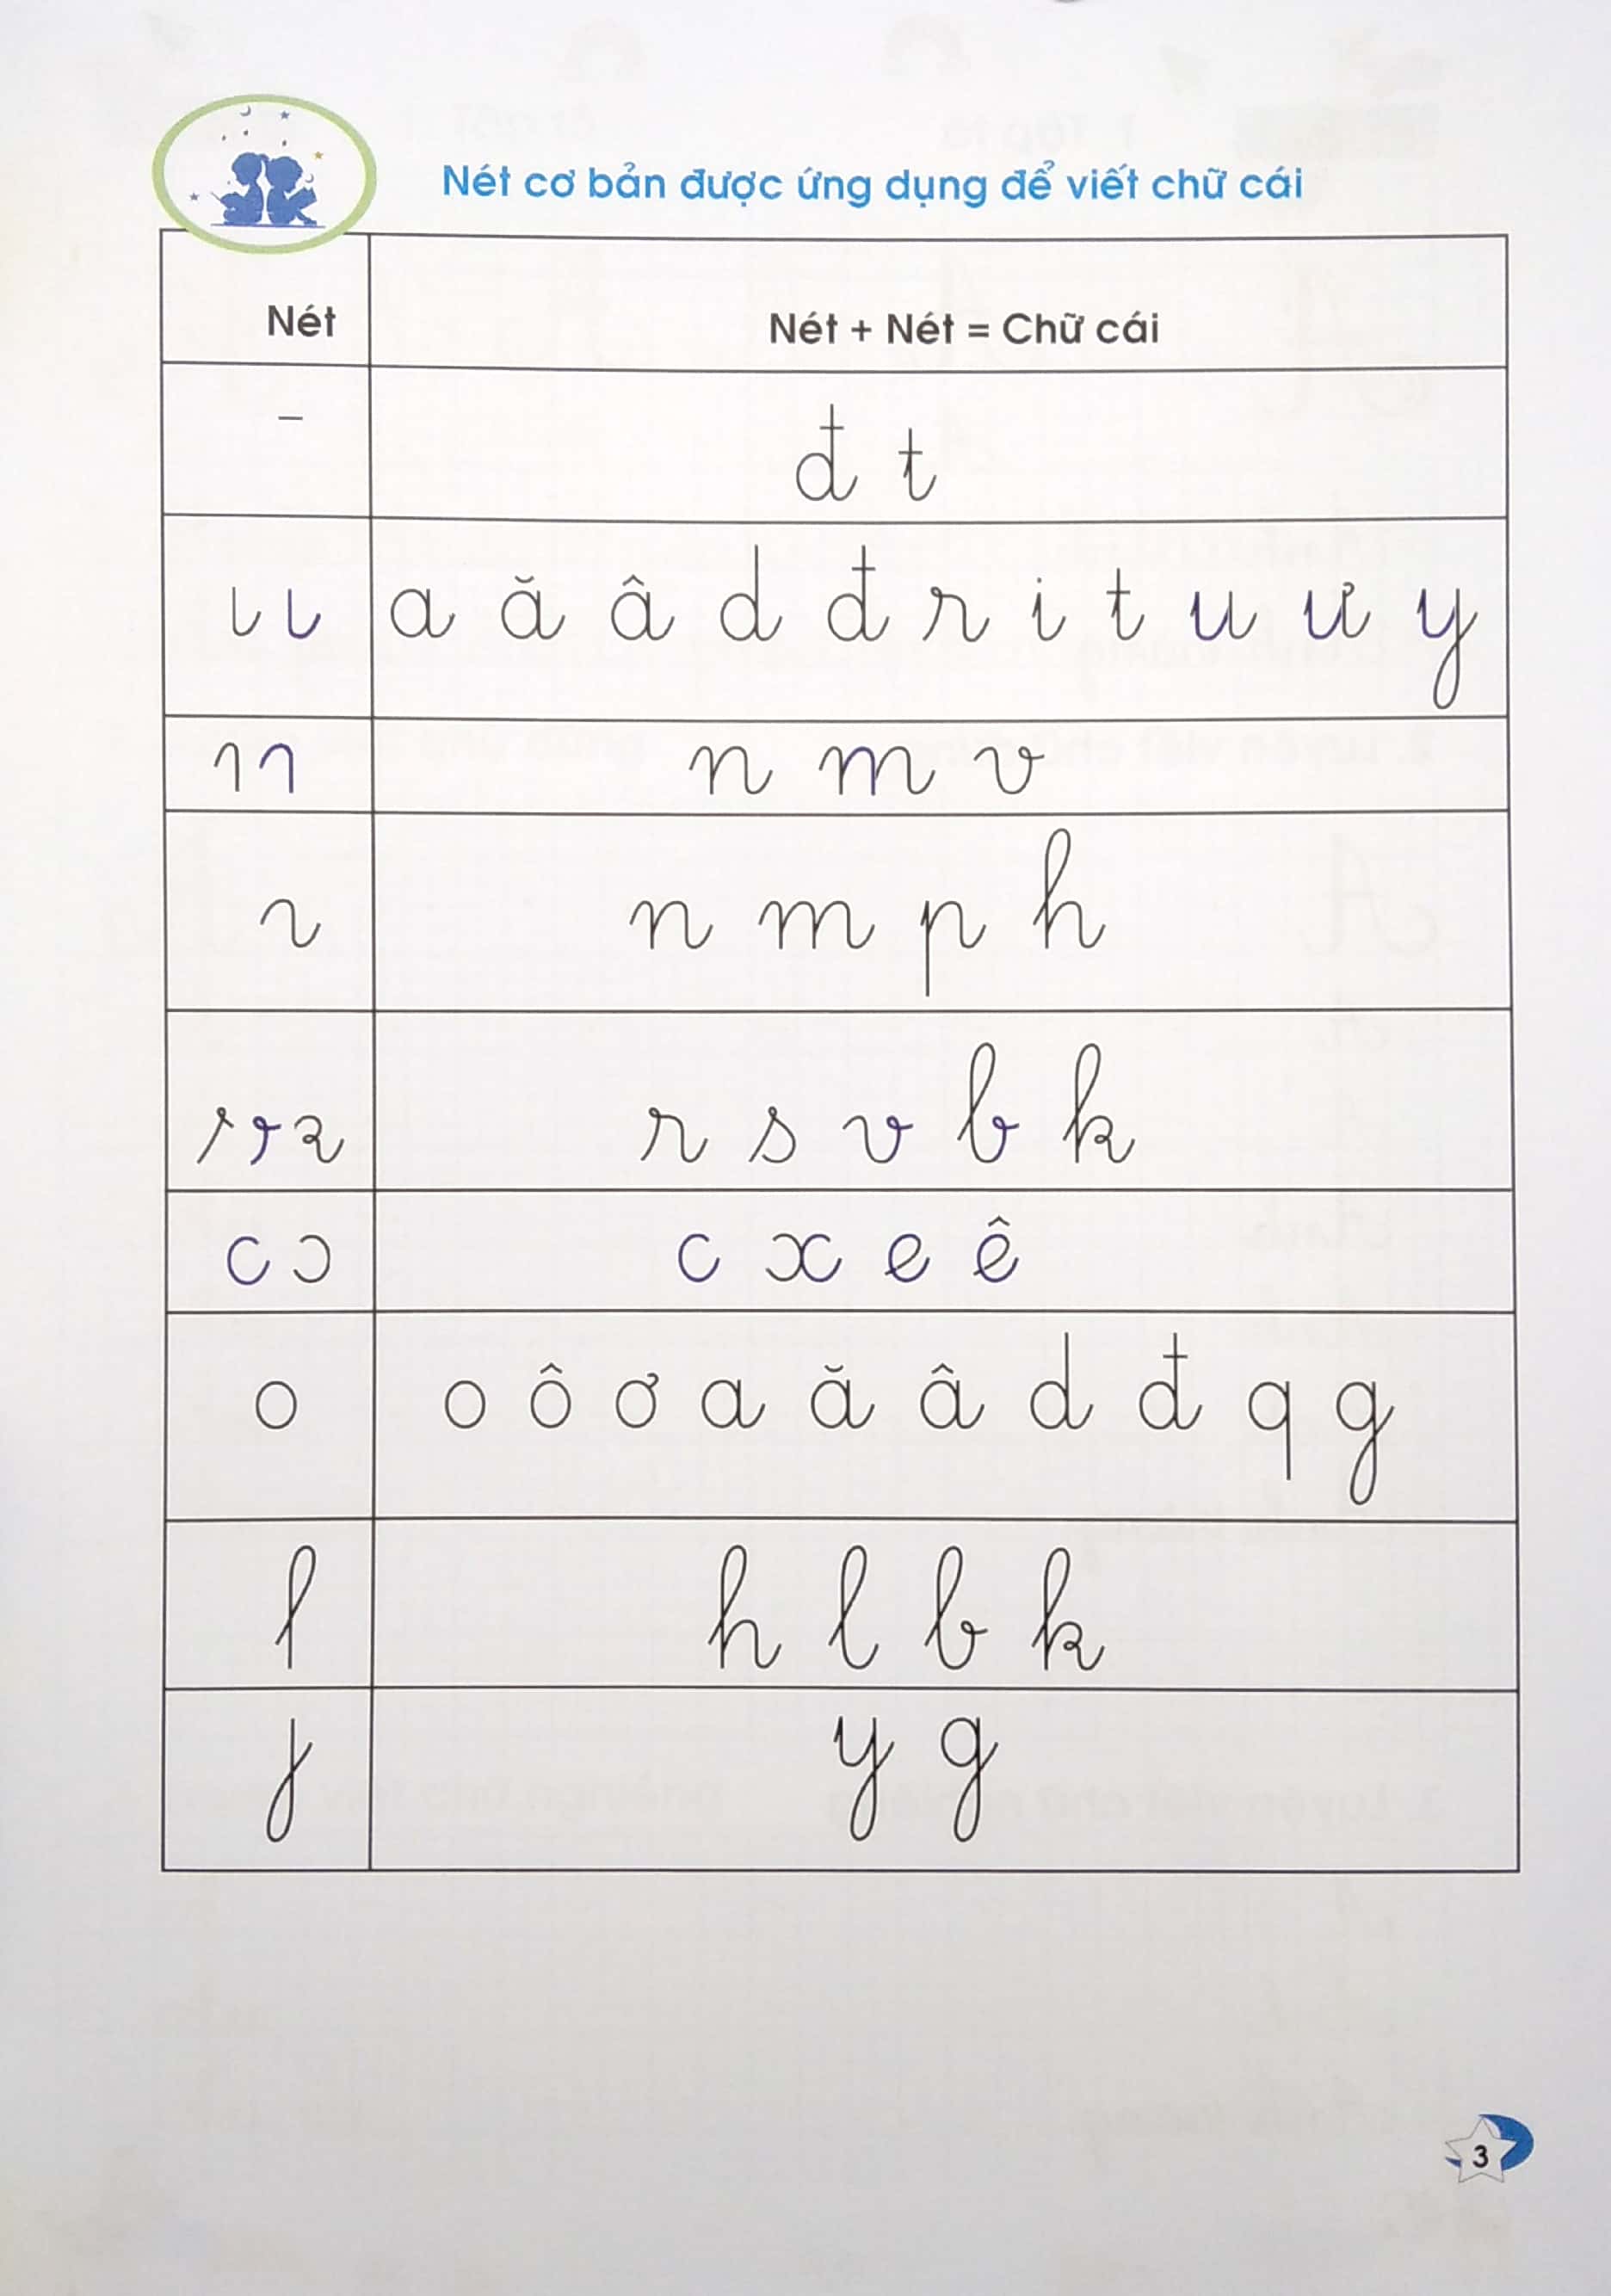 Nét cơ bản được ứng dụng để viết chữ cái
Nét Nét + Nét = Chữ cái
- đ t
a ă â d đ r i t u ư y
n m v
n m p h
r s v b k
c c x e ê
o o ô ơ a ă â d đ q g
h l b k
y g
3